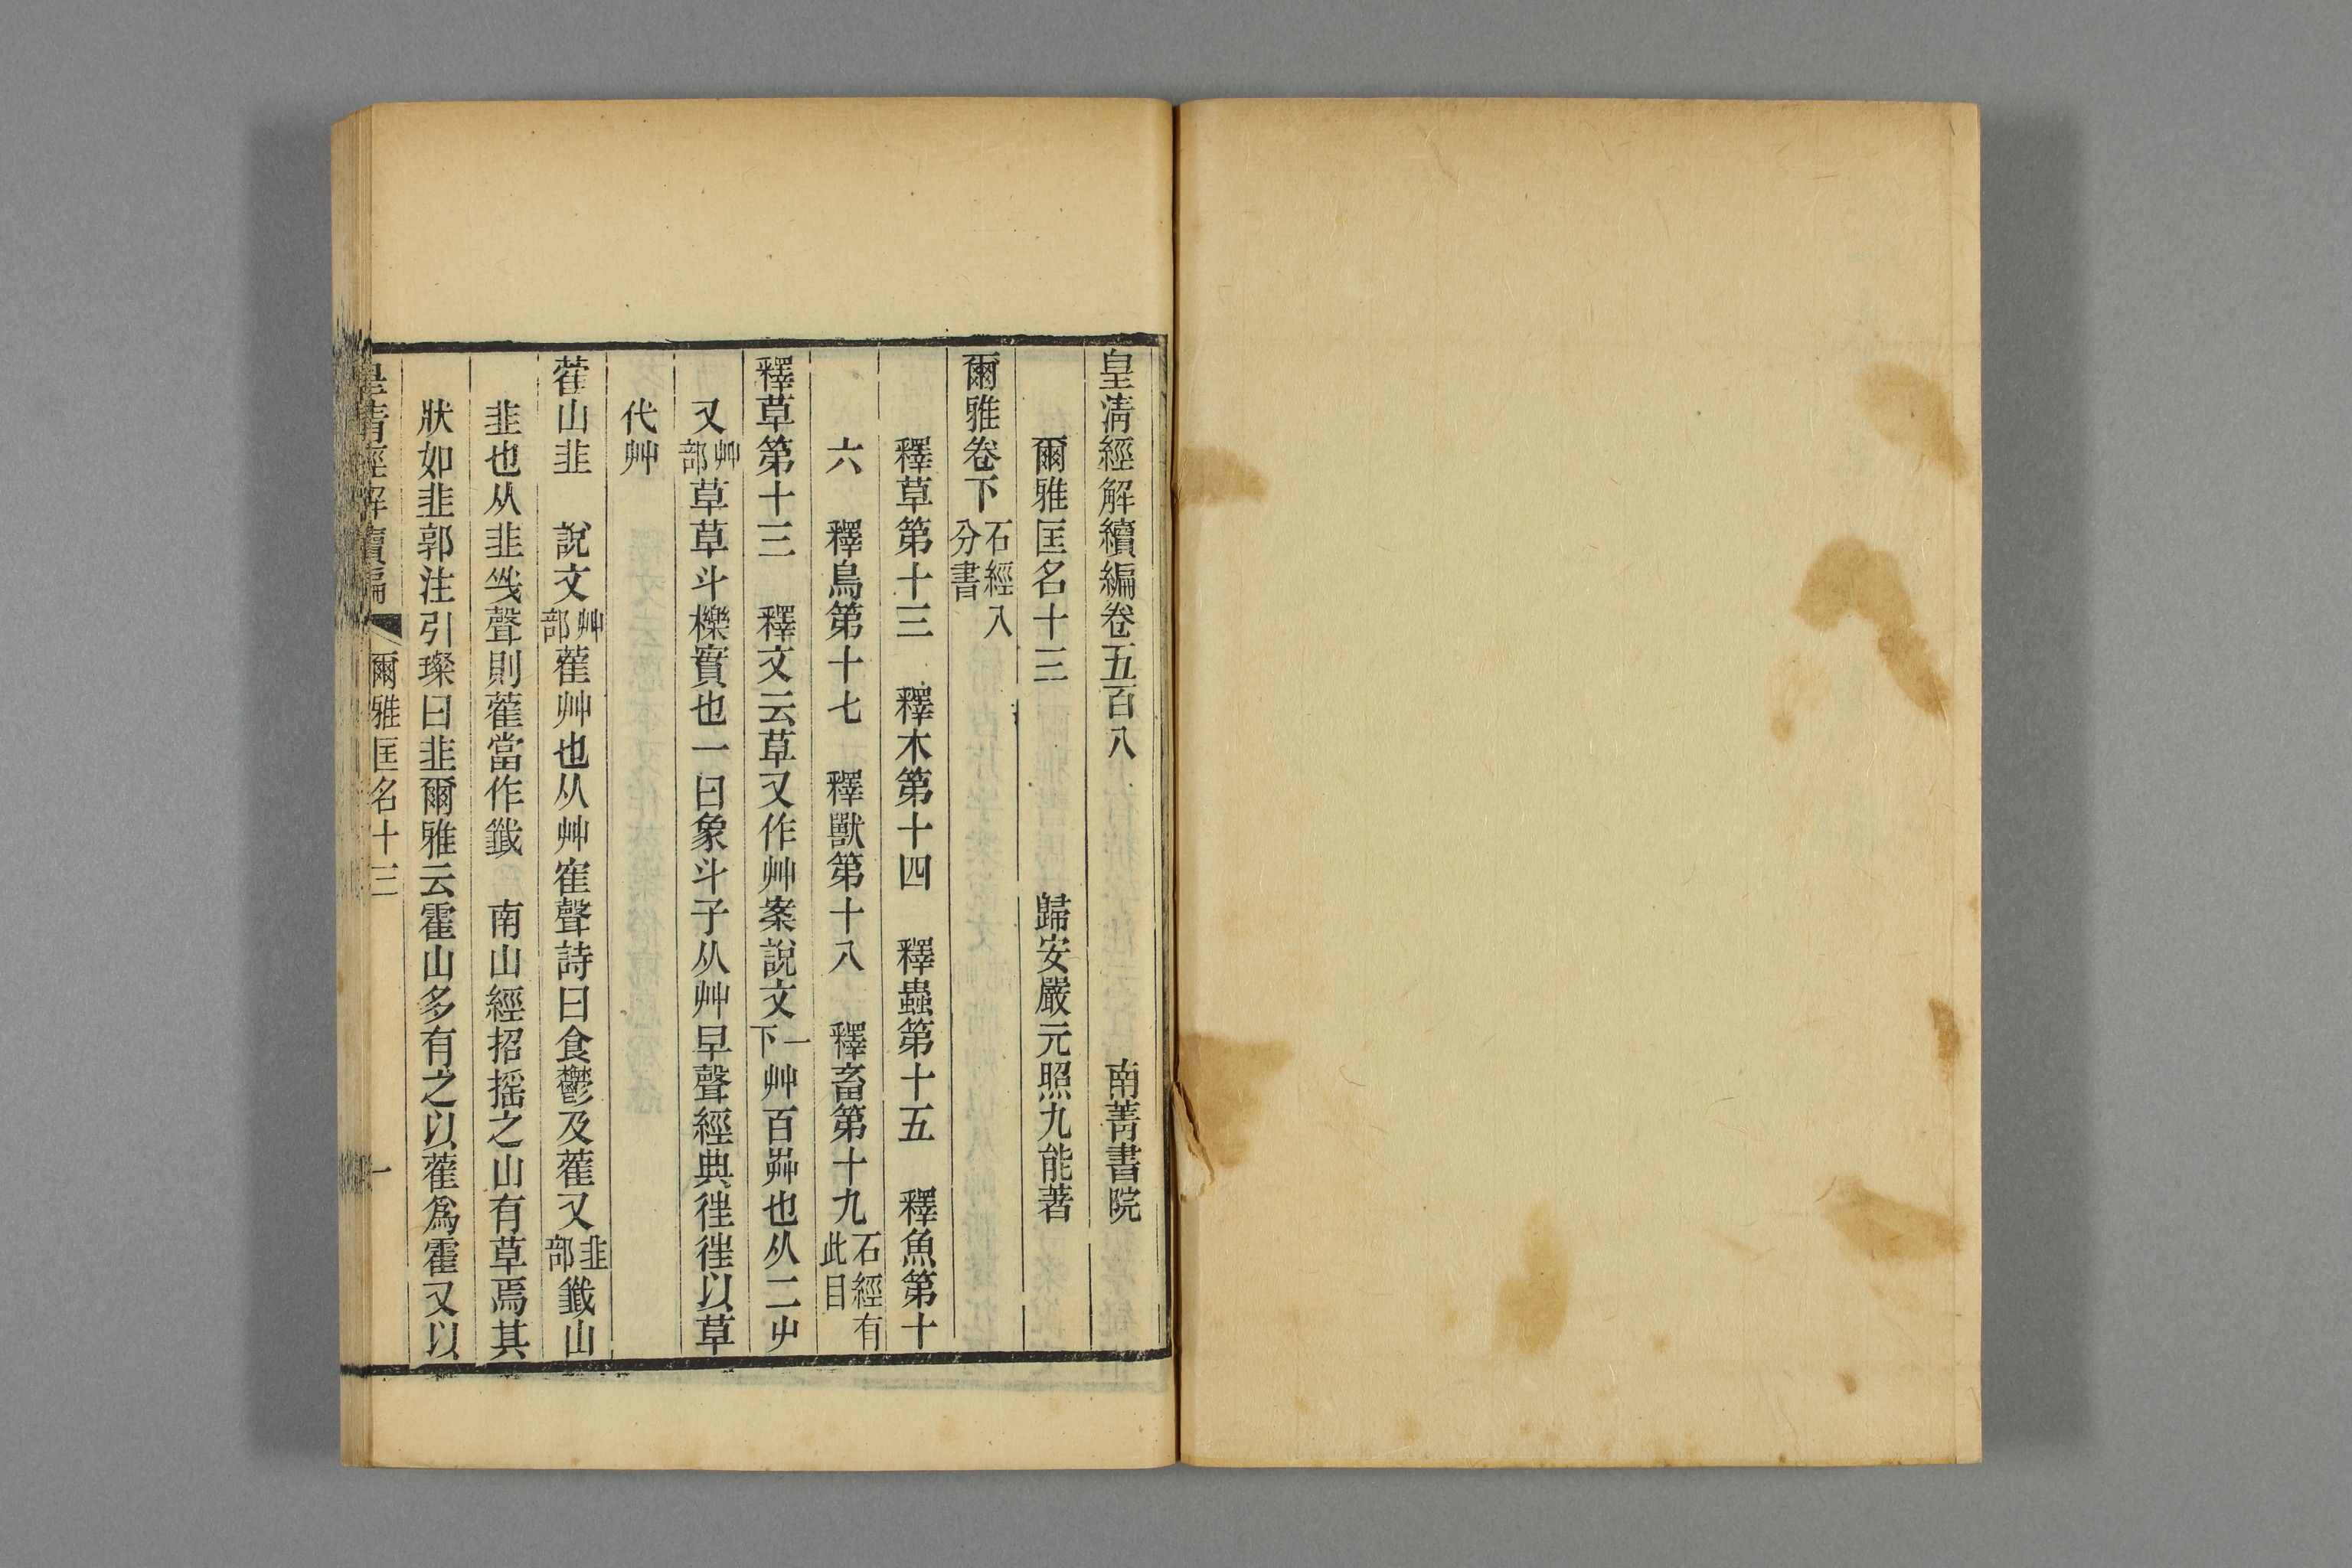 皇淸經解續編卷五百八　南菁書院
爾雅匡名十三　歸安嚴元照九能著
爾雅卷下石經入分書
釋草第十三　釋木第十四　釋蟲第十五　釋魚第十
六　釋鳥第十七　釋獸第十八　釋畜第十九石經有此目
釋草第十三　釋文云草又作艸案說文一下艸百芔也从二屮
又艸部草草斗櫟實也一曰象斗子从艸早聲經典徃徃以草
代艸
蒮山韭　說文艸部蒮艸也从艸隺聲詩曰食鬱及蒮又韭部韱山
韭也从韭㦰聲則蒮當作韱　南山經招搖之山有草焉其
狀如韭郭注引璨曰韭爾雅云霍山多有之以蒮爲霍又以
皇淸經解續編　爾雅匡名十三　一